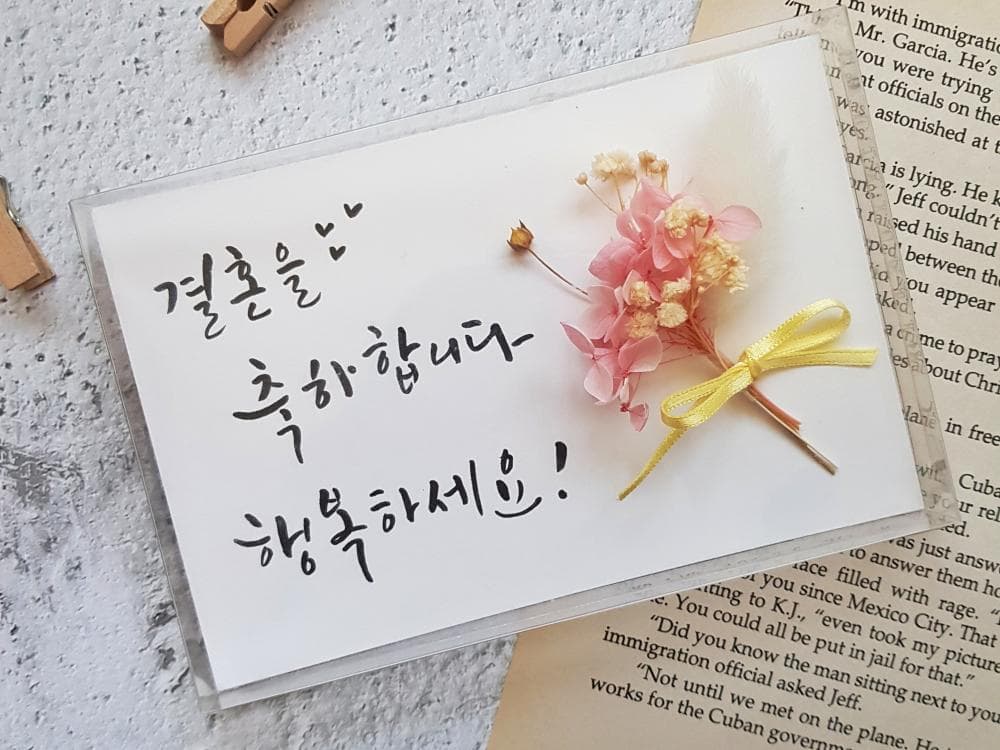 결혼을
축하합니다
행복하세요!
I'm with immigratio
Mr. Garcia. He's
you were trying
nt officials on the
was astonished at t
eyes.
arcia is lying. He k
ong." Jeff couldn't
raised his hand
ped between the
id you appear
sked.
a crime to pray
es about Chri
plane in free
with Cuba
e your rel
ed.
was just answ
to answer them ho
face filled with rage.
of you since Mexico City. That
nting to K.J., "even took my picture
e. You could all be put in jail for that."
"Did you know the man sitting next to you
immigration official asked Jeff.
"Not until we met on the plane. He
works for the Cuban governm